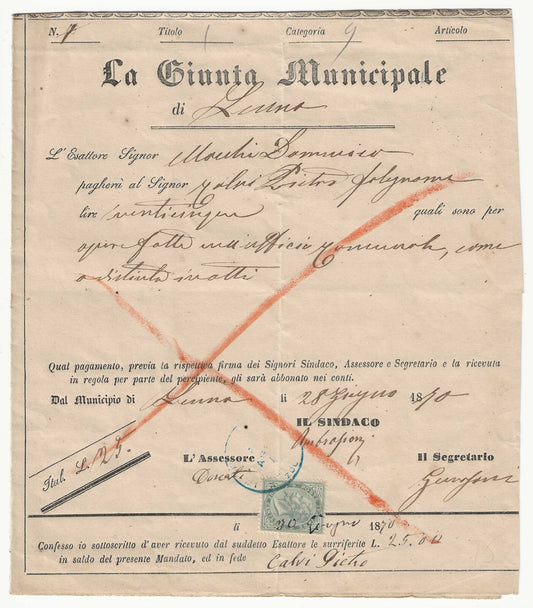 N. 1 Titolo 1 Categoria 9 Articolo
La Giunta Municipale
di Lenna
L'Esattore Signor Mocchi Domenico
pagherà al Signor Calvi Pietro falegname
lire venticinque quali sono per
opere fatte nell'ufficio comunale, come
a distinta in atti
Qual pagamento, previa la rispettiva firma dei Signori Sindaco, Assessore e Segretario e la ricevuta
in regola per parte del percipiente, gli sarà abbonato nei conti.
Dal Municipio di Lenna li 28 Giugno 1870
IL SINDACO
Ambrosioni
L'Assessore Il Segretario
Ital. L. 25.
li 30 Giugno 1870
Confesso io sottoscritto d'aver ricevuto dal suddetto Esattore le surriferite L. 25.00
in saldo del presente Mandato, ed in fede Calvi Pietro